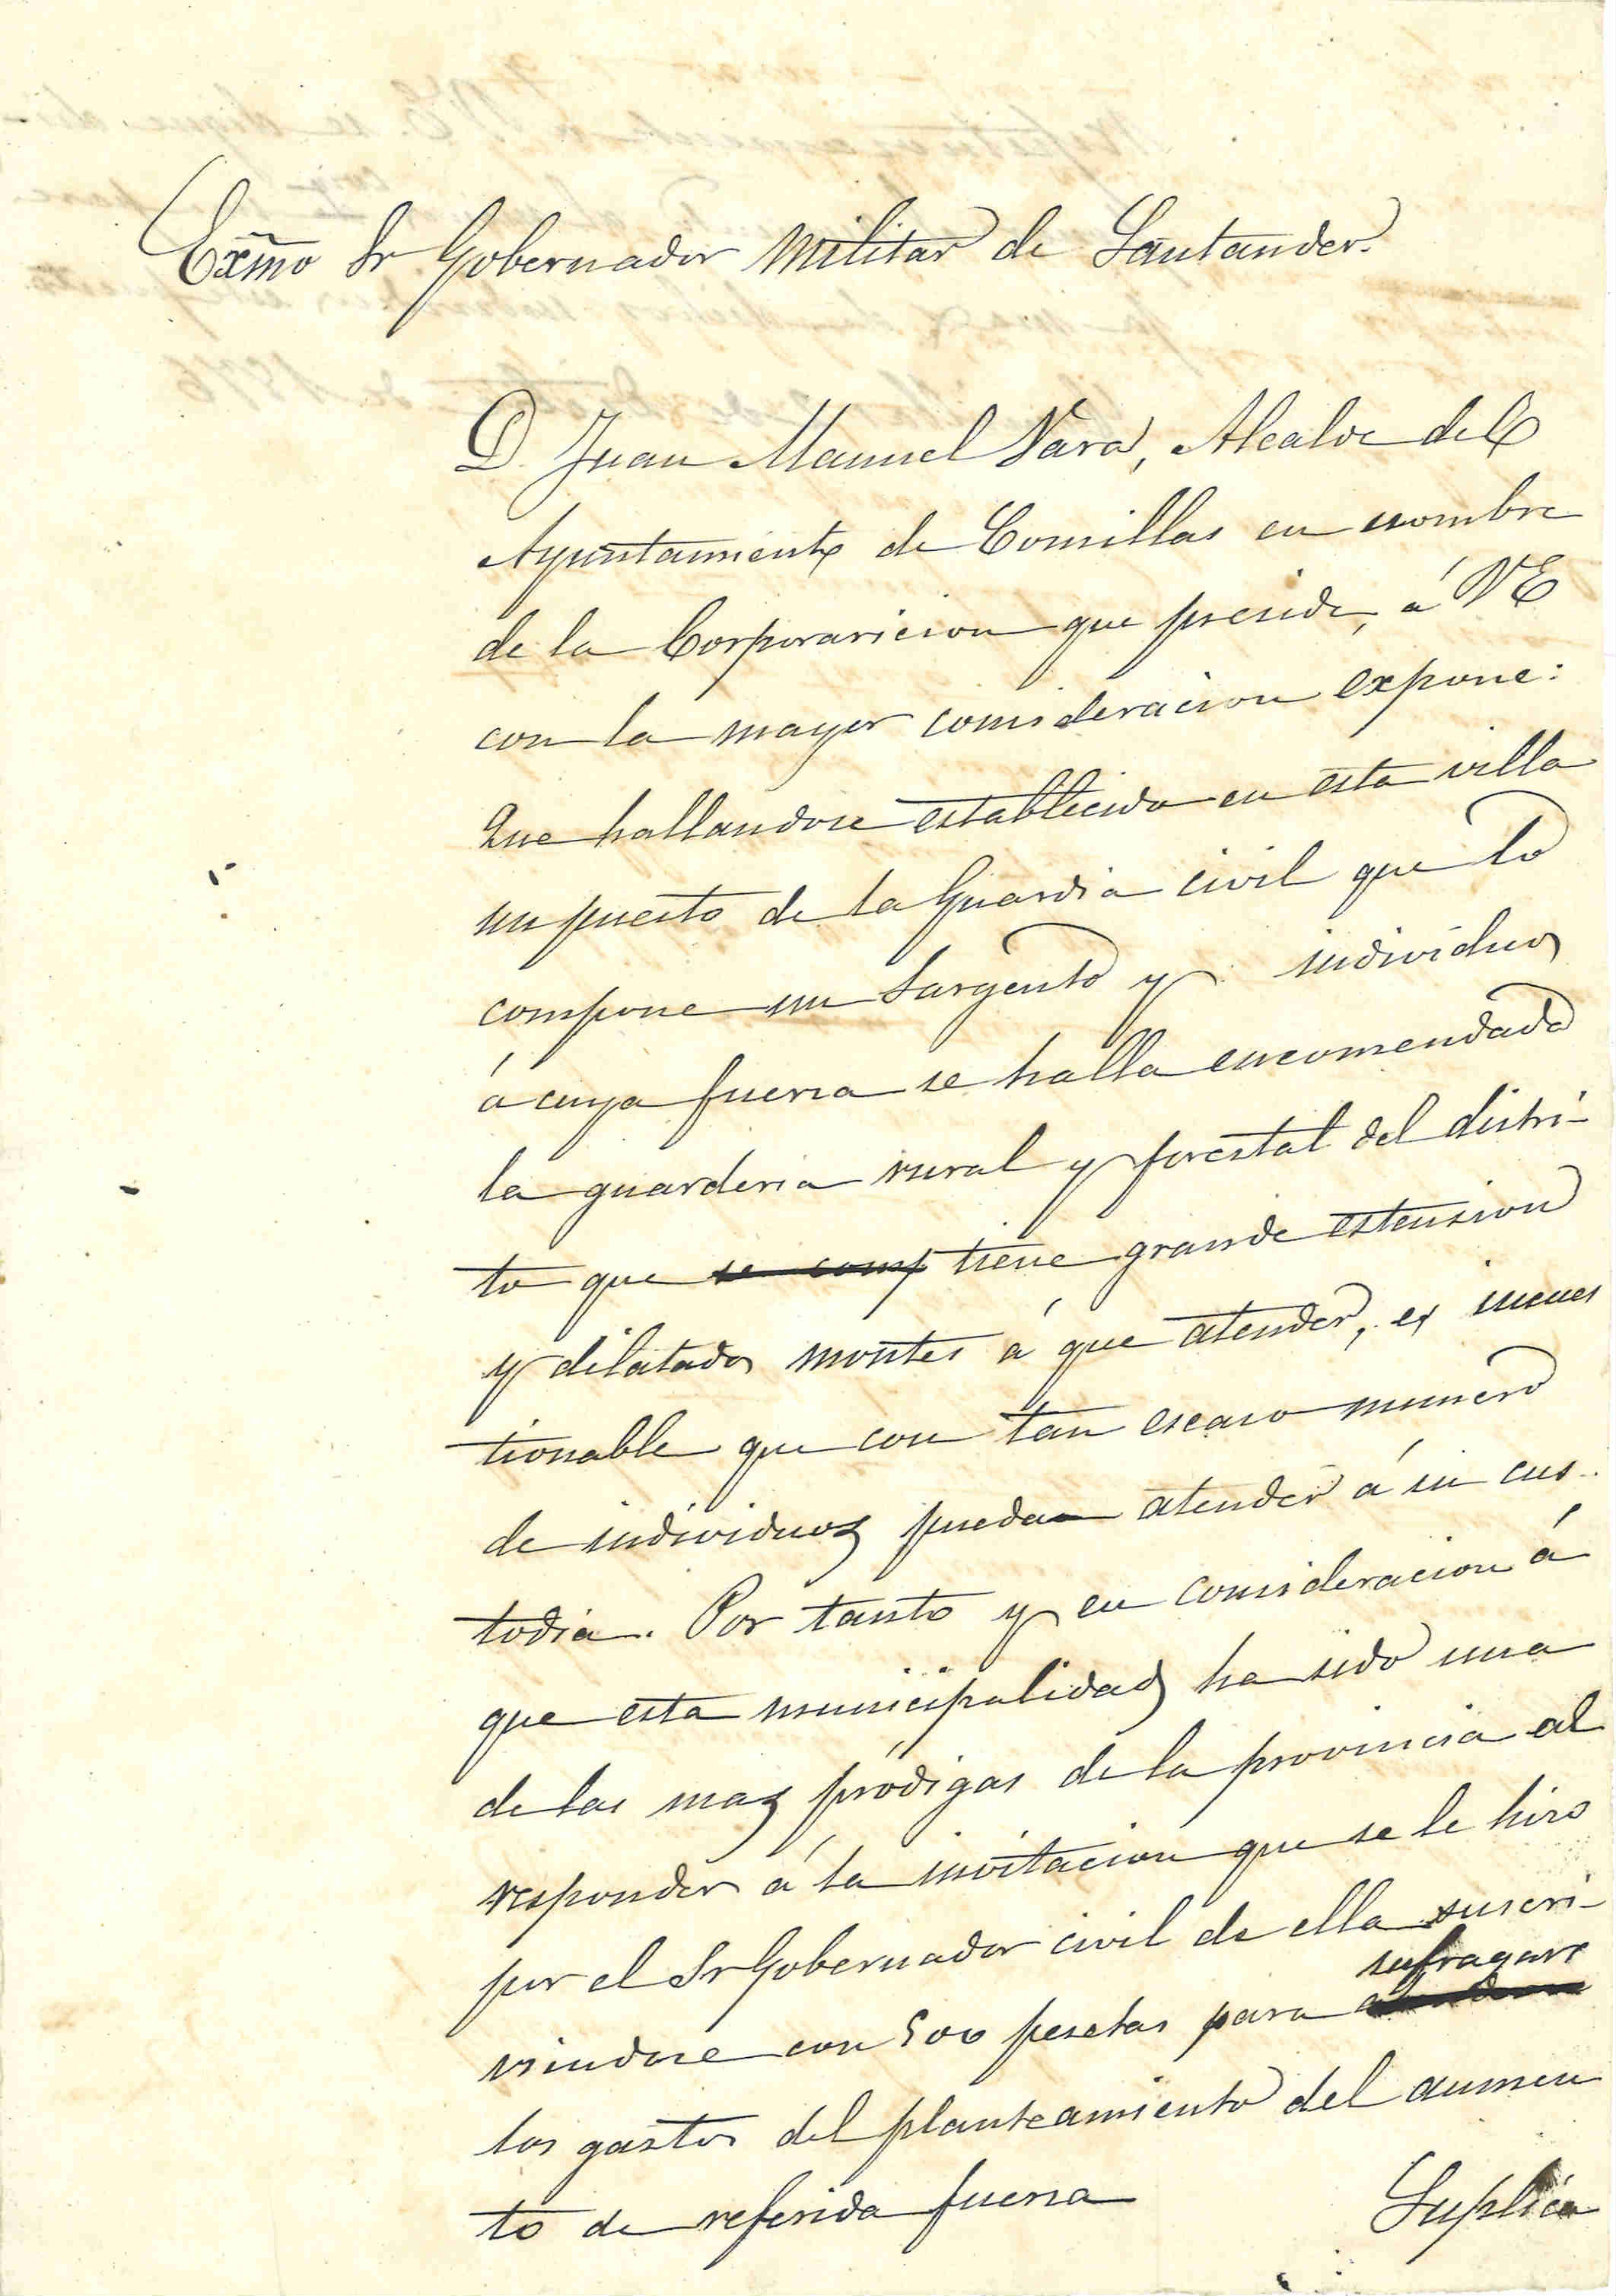 Exmo Sr Gobernador Militar de Santander.
D. Juan Manuel Vara, Alcalde del
Ayuntamiento de Comillas en nombre
de la Corporaricion que preside, á VE
con la mayor consideracion expone:
Que hallandose establecido en esta villa
un puesto de la Guardia civil que lo
compone un Sargento y individuos
á cuya fuerza se halla encomendada
la guarderia rural y forestal del distri-
to que se comp tiene grande estension
y dilatados montes á que atender, es incues
tionable que con tan escaso numero
de individuos puedan atender á su cus-
todia. Por tanto y en consideracion á
que esta municipalidad ha sido una
de las mas pródigas de la provincia al
responder á la invitacion que se le hizo
por el Sr Gobernador civil de ella suscri-
viendose con 500 pesetas para sufragare
los gastos del planteamiento del aumen
to de referida fuerza
Suplica